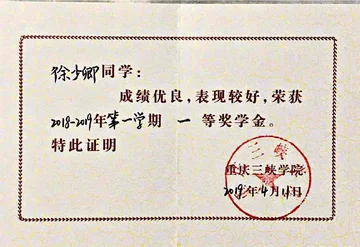 徐少卿同学：
成绩优良，表现较好，荣获
2018-2019年第一学期 一 等奖学金。
特此证明
三峡
重庆三峡学院
2019年4月15日